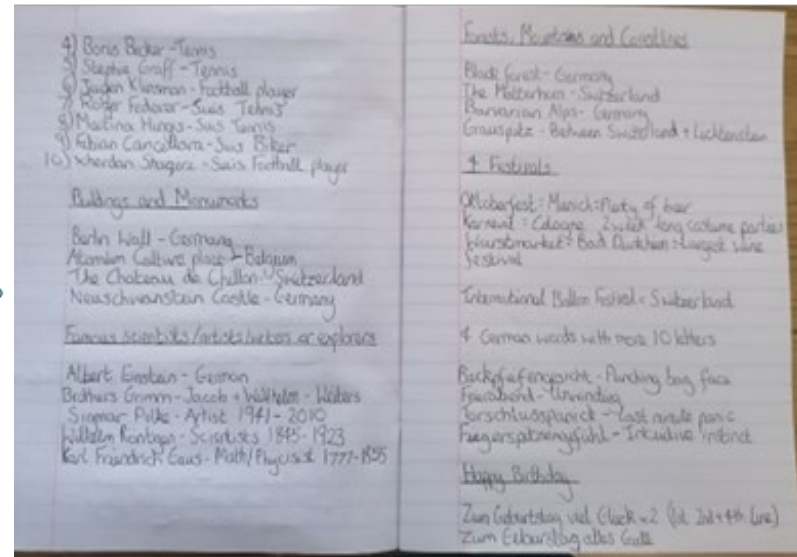 4) Boris Becker - Tennis
5) Stephie Graff - Tennis
6) Jurgen Klinsman - Football player
7) Roger Federer - Suis Tennis
8) Martina Hingis - Suis Tennis
9) Fabian Cancillara - Suis Biker
10) Xherdan Shaqerz - Suis Football player
Buildings and Monuments
Berlin Wall - Germany
Atomium Culture place - Belgium
The Chateau de Chillon - Switzerland
Neuschwanstein Castle - Germany
Famous scientists/artists/writers or explorers
Albert Einstein - German
Brothers Grimm - Jacob + Wilhelm - Writers
Sigmar Polke - Artist 1941 - 2010
Wilhelm Rontgen - Scientists 1845 - 1923
Karl Friendrich Gaus - Math/Physicist 1777-1855
Forests, Mountains and Coastlines
Black Forest - Germany
The Matterhorn - Switzerland
Barvarian Alps - Germany
Grauspitz - Between Switzerland + Lichtenstein
4 Festivals
Oktoberfest = Munich = Party of beer
Karneval = Cologne 2 week long costume parties
Wurstmarket = Bad Durkheim = Largest wine
festival
International Ballon Festival = Switzerland
4 German words with more 10 letters
Backpfeifengesicht - Punching bag face
Feierabend - Unwinding
Torschlusspanick - Last minute panic
Fingerspitzengefühl - Intuitive instinct
Happy Birthday
Zum Geburtstag viel Gluck x2 (1st 2nd + 4th line)
Zum Geburstag alles Gute